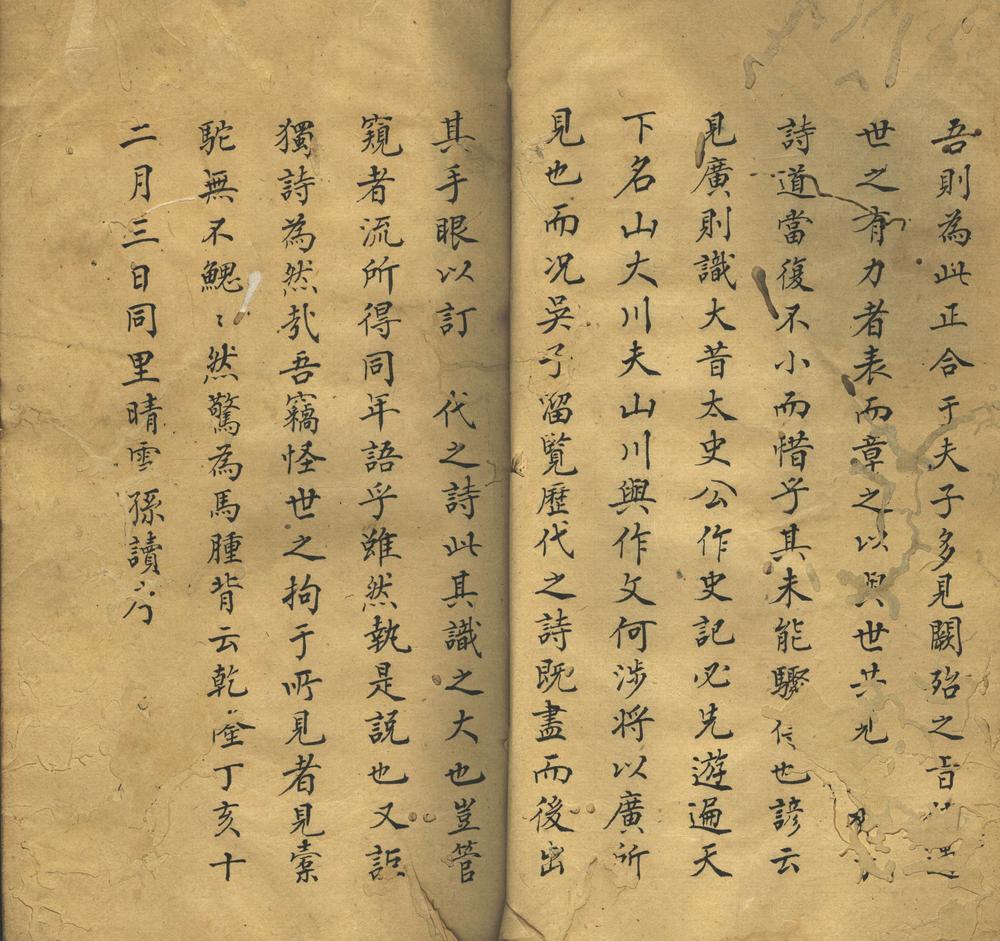 吾則為此正合于夫子多見闕殆之旨
世之有力者表而章之以與世共見
詩道當復不小而惜乎其未能驟信也諺云
見廣則識大昔太史公作史記必先遊遍天
下名山大川夫山川與作文何涉將以廣所
見也而况吳子留覽歷代之詩既盡而後出
其手眼以訂 代之詩此其識之大也豈管
窺者流所得同年語乎雖然執是説也又詎
獨詩為然㢤吾竊怪世之拘于所見者見橐
駝無不鰓〻然驚為馬腫背云乾隆丁亥十
二月三日同里晴雪孫讀